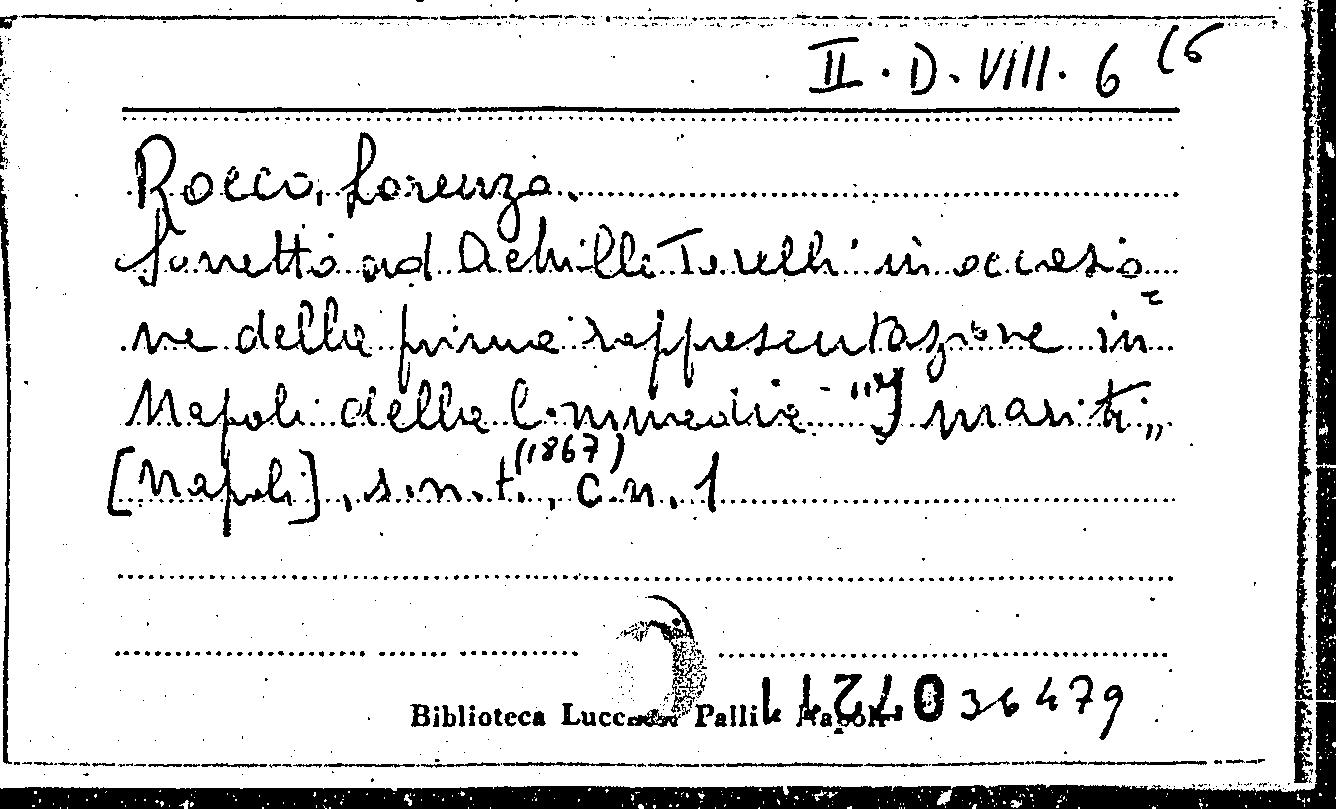 II. D. VIII. 6 (6
Rocco, Lorenzo.
Sonetto ad Achille Torelli in occasio
ne della prima rappresentazione in
Napoli della Commedia "I mariti"
(1867)
[Napoli], s.n.t., c.n. 1
Biblioteca Lucchesi Palli Napoli
036479